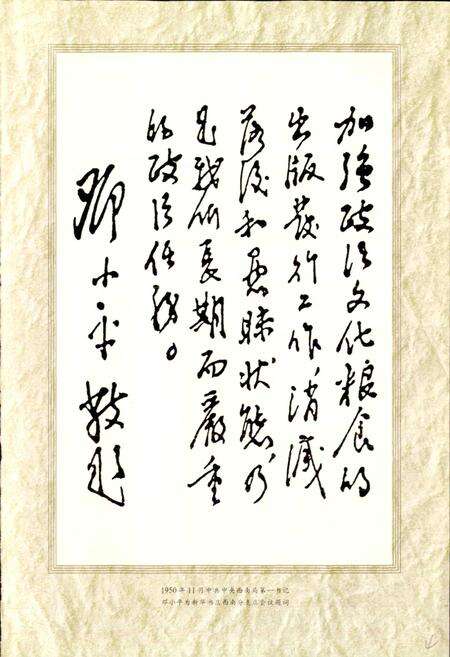 加强政治文化粮食的
出版发行工作，消灭
落后和愚昧状态，乃
是我们长期而严重
的政治任务。
邓小平敬题
1950年11月中共中央西南局第一书记
邓小平为新华书店西南分店会议题词